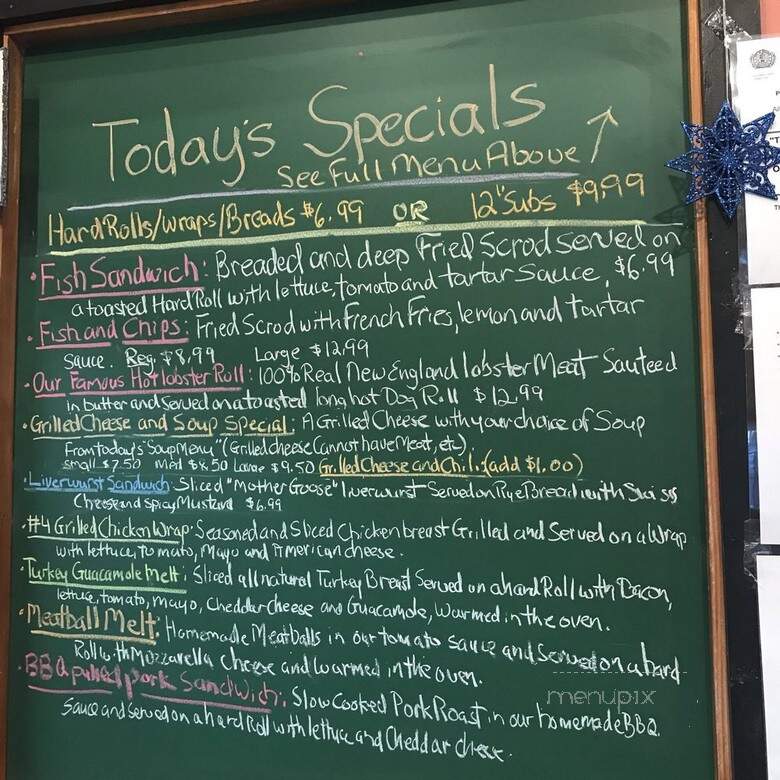 Today's Specials
See Full Menu Above
Hard Rolls/Wraps/Breads $6.99 OR 12" Subs $9.99
• Fish Sandwich: Breaded and deep Fried Scrod served on
a toasted Hard Roll with lettuce, tomato and tartar sauce, $6.99
• Fish and Chips: Fried Scrod with French Fries, lemon and tartar
Sauce. Reg. $8.99 Large $12.99
• Our Famous Hot lobster Roll: 100% Real New England lobster Meat Sauteed
in butter and Served on a toasted long hot Dog Roll $12.99
• Grilled Cheese and Soup Special: A Grilled Cheese with your choice of Soup
From today's "Soup Menu" (Grilled cheese Cannot have Meat, etc).
Small $7.50 Med $8.50 Large $9.50 Grilled Cheese and Chili (add $1.00)
• Liverwurst Sandwich: Sliced "Mother Goose" liverwurst Served on Rye Bread with Swiss
Cheese and Spicy Mustard $6.99
• #4 Grilled Chicken Wrap: Seasoned and Sliced Chicken breast Grilled and Served on a Wrap
with lettuce, tomato, Mayo and American cheese.
• Turkey Guacamole Melt: Sliced all natural Turkey Breast Served on a hard Roll with Bacon,
lettuce, tomato, mayo, Cheddar cheese and Guacamole, Warmed in the oven.
• Meatball Melt: Homemade Meatballs in our tomato sauce and Served on a hard
Roll with Mozzarella cheese and warmed in the oven.
• BBQ pulled pork Sandwich: Slow Cooked Pork Roast in our homemade BBQ
Sauce and served on a hard Roll with lettuce and Cheddar cheese.
menupix